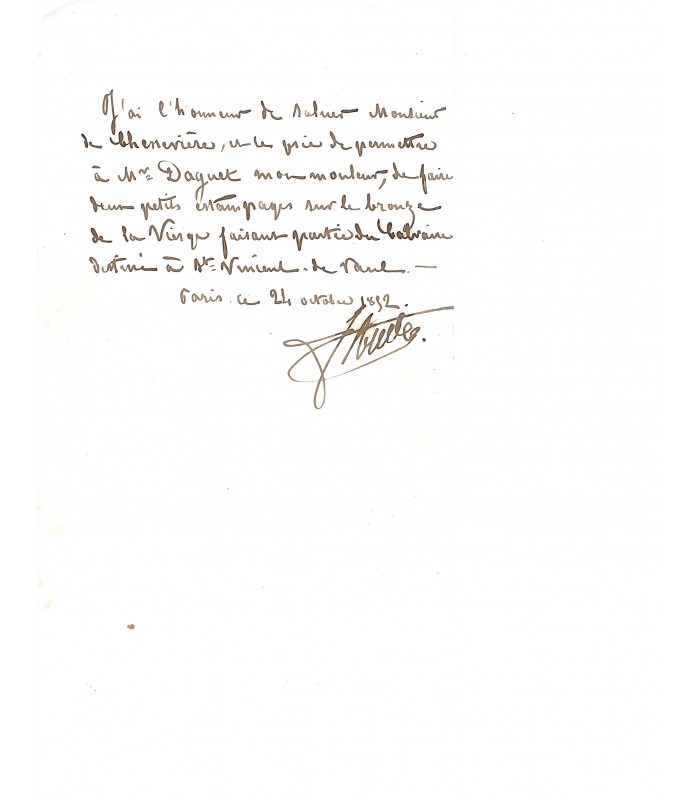 J'ai l'honneur de saluer Monsieur
de Chenevière, et le prie de permettre
à Mr. Daguet mon mouleur, de faire
deux petits estampages sur le bronze
de la Vierge faisant partie du Calvaire
destiné à St. Vincent-de Paul. —
Paris, ce 24 octobre 1852.